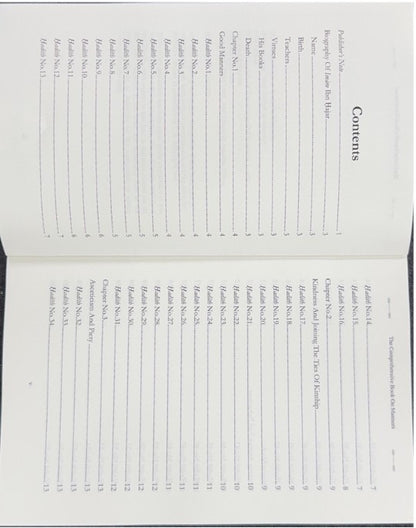 Contents
Publisher's Note 1
Biography Of Imam Ibn Hajar 3
Name 3
Birth 3
Teachers 3
Virtues 3
His Books 3
Death 3
Chapter No.1 4
Good Manners 4
Hadith No.1 4
Hadith No.2 4
Hadith No.3 4
Hadith No.4 4
Hadith No.5 5
Hadith No.6 5
Hadith No.7 5
Hadith No.8 5
Hadith No.9 6
Hadith No.10
Hadith No.11
Hadith No.12
Hadith No.13 7
The Comprehensive Book On Manners
Hadith No.14 7
Hadith No.15 7
Hadith No.16 8
Chapter No.2 9
Kindness And Joining The Ties Of Kinship 9
Hadith No.17 9
Hadith No.18 9
Hadith No.19 9
Hadith No.20 9
Hadith No.21 10
Hadith No.22 10
Hadith No.23 10
Hadith No.24 11
Hadith No.25 11
Hadith No.26 11
Hadith No.27 11
Hadith No.28
Hadith No.29 12
Hadith No.30 12
Hadith No.31 12
Chapter No.3 13
Asceticism And Piety 13
Hadith No.32 13
Hadith No.33 13
Hadith No.34 13